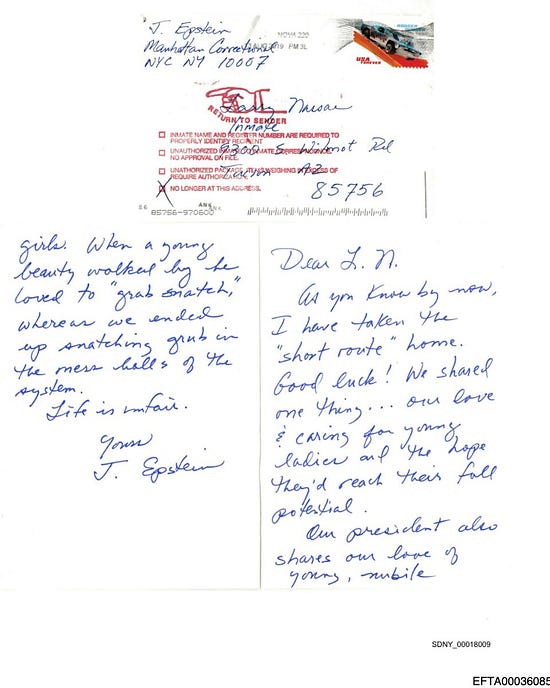 J. Epstein
Manhattan Correctional
NYC NY 10007
NOVA 220
AUG 2019 PM 3L
USA
FOREVER
RETURN TO SENDER
Larry Nassar
Inmate
9300 S. Wilmot Rd
Tucson AZ
85756
INMATE NAME AND REGISTER NUMBER ARE REQUIRED TO
PROPERLY IDENTIFY RECIPIENT
UNAUTHORIZED
NO APPROVAL ON FILE.
UNAUTHORIZED PACKAGE
REQUIRE AUTHORIZATION
NO LONGER AT THIS ADDRESS.
ANK
85756-970600
Dear L. N.
As you know by now,
I have taken the
"short route" home.
Good luck! We shared
one thing... our love
& caring for young
ladies and the hope
they'd reach their full
potential.
Our president also
shares our love of
young, nubile
girls. When a young
beauty walked by he
loved to "grab snatch,"
whereas we ended
up snatching grub in
the mess halls of the
system.
Life is unfair.
Yours
J. Epstein
SDNY_00018009
EFTA00036085